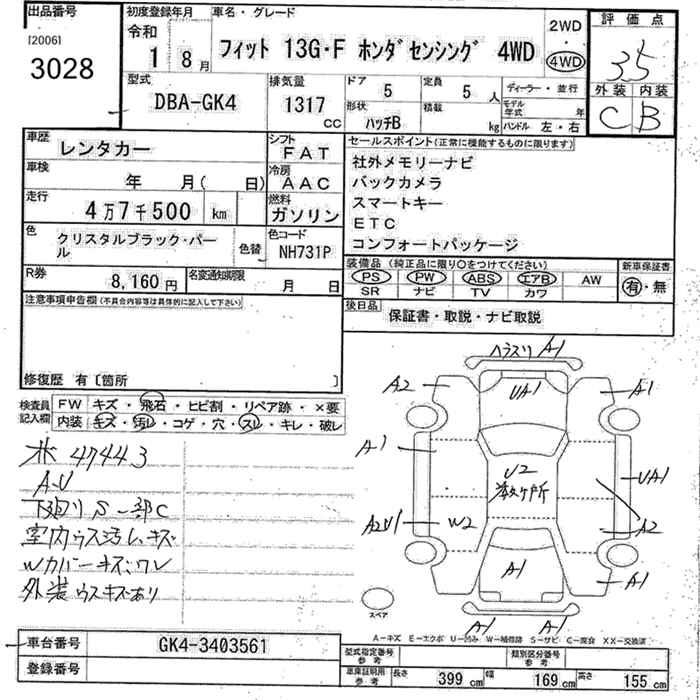 出品番号
[2006]
3028
初度登録年月
令和
1 8月
車名・グレード
フィット 13G・F ホンダセンシング 4WD
2WD
4WD
評価点
3.5
外装 内装
C B
型式
DBA-GK4
排気量
1317 CC
ドア
5
定員
5 人
形状
ハッチB
積載
kg
ディーラー・並行
モデル年式 年
ハンドル 左・右
車歴
レンタカー
シフト
FAT
車検
年 月( 日)
冷房
AAC
走行
4万7千500 km
燃料
ガソリン
色
クリスタルブラック・パール
色替
色コード
NH731P
R券
8,160円
名変通知期限
月 日
セールスポイント(正常に機能するものに限ります)
社外メモリーナビ
バックカメラ
スマートキー
ETC
コンフォートパッケージ
装備品 (純正品に限り○をつけてください)
PS PW ABS エアB AW
SR ナビ TV カワ
新車保証書
有・無
後日品
保証書・取説・ナビ取説
注意事項申告欄(不具合内容等は具体的に記入して下さい)
修復歴 有〔箇所 〕
検査員記入欄
FW キズ・飛石・ヒビ割・リペア跡・×要
内装 キズ・汚レ・コゲ・穴・スレ・キレ・破レ
47443
A・U
下廻りS一部C
室内ウス汚レ、キズ
Wカバーキズ、ワレ
外装ウスキズあり
ヘラスリ A1
A2
UA1
A1
A1
U2
数ヶ所
UA1
A2U1
W2
A2
A1
A1
A1
A1
スペア
A-キズ E-エクボ U-凹み W-補修跡 S-サビ C-腐食 XX-交換済
車台番号
GK4-3403561
登録番号
型式指定番号
参考
類別区分番号
参考
車庫証明用
参考
長さ 399 cm 幅 169 cm 高さ 155 cm